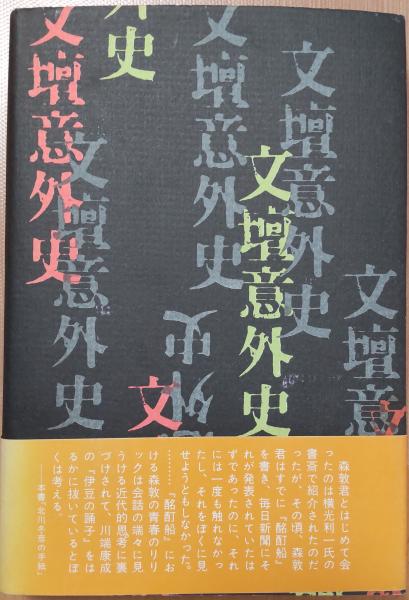 文壇意
文壇意外史
文壇意外史
文壇意外史
史
外史
文
文壇意外史
文壇意外史
森敦君とはじめて会
ったのは横光利一氏の
書斎で紹介されたのだ
ったが、その頃、森敦
君はすでに『酩酊船』
を書き、毎日新聞にそ
れが発表されていたは
ずであったのに、それ
には一度も触れなかっ
たし、それをぼくに見
せようともしなかった。
………『酩酊船』にお
ける森敦の青春のリリ
ックは会話の端々に見
うける近代的思考に裏
づけされて、川端康成
の『伊豆の踊子』をは
るかに抜いているとぼ
くは考える。
——本書、北川冬彦の手紙